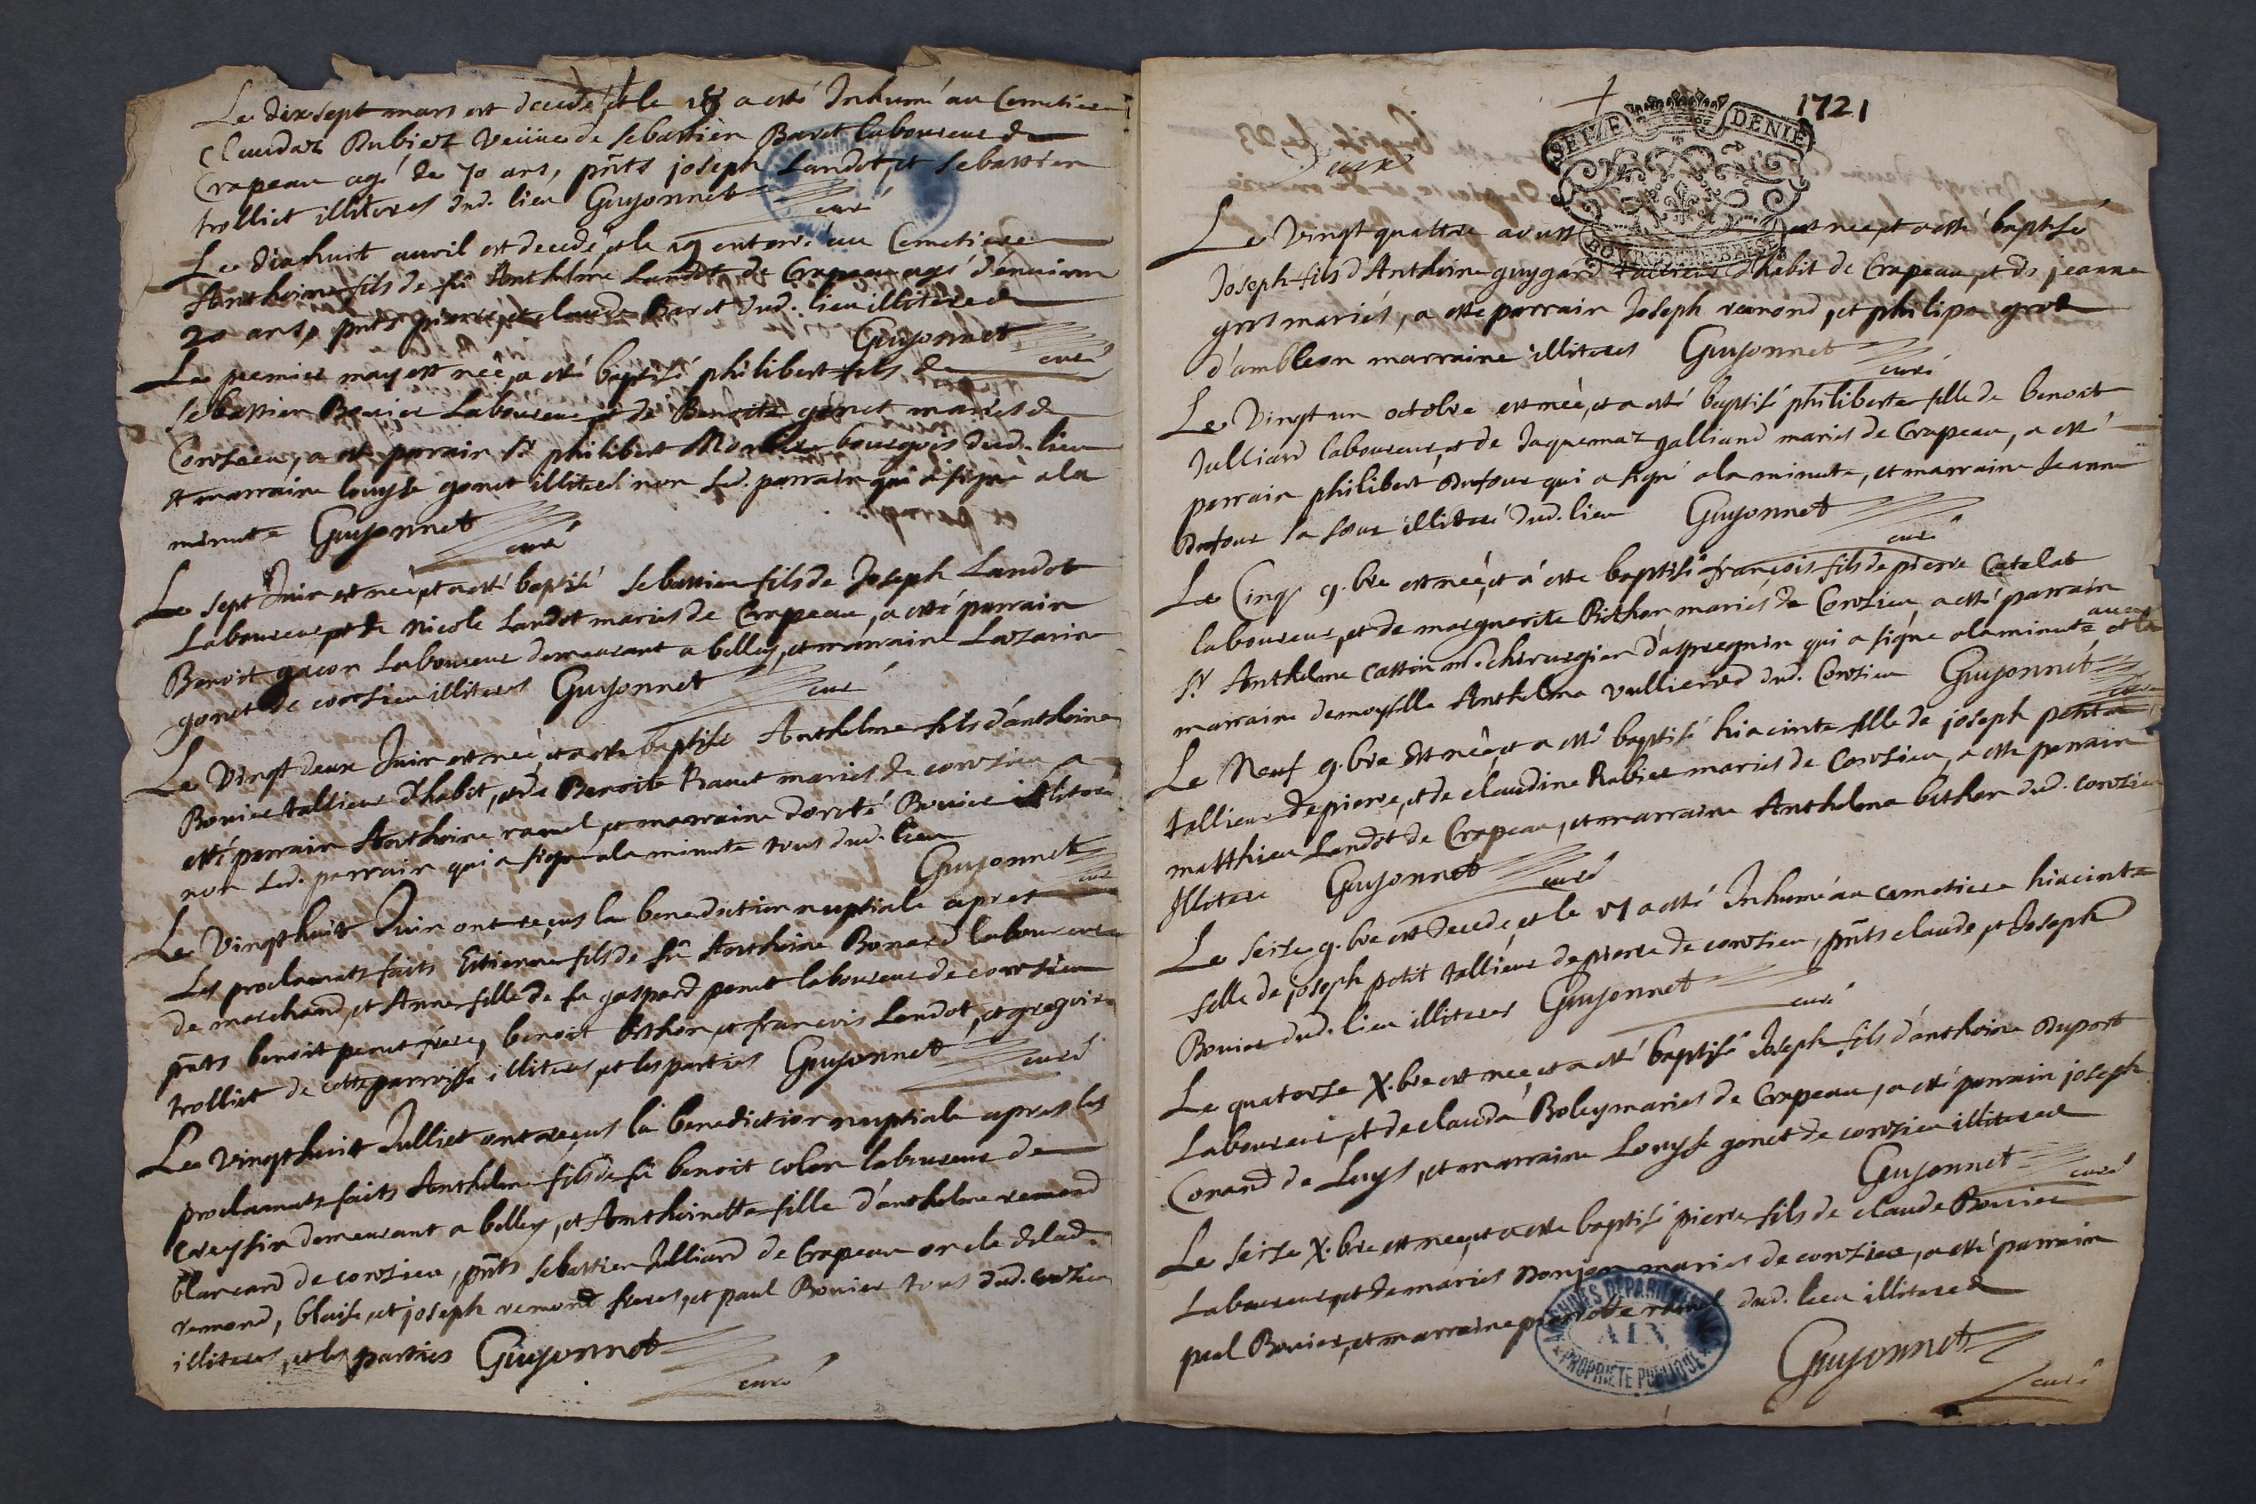 Le dixsept mars est decedé, et le 18 a esté Inhumé au Cemetiere
Claudaz Rubiez Veüve de Sebastien Baret laboureur de
Crapeau agé de 70 ans, pnts joseph Landot, et sebastien
trolliet illiteres dud. lieu Guyonnet curé
Le dixhuit auril est decedé, et le 19 enterré au Cemetiere
Anthoine fils de fû Anthelme Landot de Crapeau agé d'enuiron
20 ans, pnts pierre, et claude Baret dud. lieu illiteres
Guyonnet curé
Le premier may est né, a eté baptisé philibert fils de
sebastien Bouier Laboureur et de Benoite gonet mariés de
Corzieu, a eté parrain Sr philibert bourgois dud. lieu
et marraine louyse gonet illiteres non led. parrain qui a signé a la
minute Guyonnet curé
Le sept Juin est né, et a esté baptisé sebastien fils de Joseph Landot
Laboureur et de Nicole Landot mariés de Crapeau, a esté parrain
Benoit gacon Laboureur demeurant a belley, et marraine Lazarine
gonet de corzieu illiteres Guyonnet curé
Le Vingt deux Juin est né, et a esté baptisé Anthelme fils d'anthoine
Bouier tallieur d'habit, et de Benoite Ranet mariés de corzieu a
esté parrain Anthoine ramel et marraine doroté Bouier illitere
non led. parrain qui a signé a la minute tous dud. lieu
Guyonnet curé
Le Vingthuit Juin ont reçus la benediction nuptiale apres
les proclamats faits Estienne fils de fû Anthoine Bonard laboureur
de marchand, et Anne fille de fu gaspard penet laboureur de corzieu
pnts benoit penet frere, benoit bithon, et francois Landot, et gregoire
trolliet de cette parroisse illiteres, et les parties Guyonnet curé
Le Vingthuit Julliet ont reçus la benediction nuptiale apres les
proclamats faits Anthelme fils de fû benoit colon laboureur de
creysin demeurant a belley, et Anthoinette fille d'anthelme remond
blancard de corzieu, pnts sebastien Julliard de Crapeau oncle de lad.
remond, blaise, et joseph remond freres, et paul Bouier tous dud. corzieu
illiteres, et les parties Guyonnet curé
1721
SEIZE DENIE
BOURGOGNE BRESSE
Le Vingt quattre aoust est né, et a esté baptisé
Joseph fils d'Anthoine guygard tallieur d'habit de Crapeau, et de jeanne
grot mariés, a esté parrain Joseph remond, et philipa grot
d'ambleon marraine illiteres Guyonnet curé
Le Vingt un octobre est née, et a esté baptisé philiberte fille de benoit
Julliard laboureur, et de Jaquemaz galliand mariés de Crapeau, a esté
parrain philibert Dufour qui a signé a la minute, et marraine Jeanne
Dufour sa sœur illiteré dud. lieu Guyonnet curé
Le Cinq 9.bre est né, et a esté baptisé françois fils de pierre Catelat
laboureur, et de marguerite Bithon mariés de Corzieu a esté parrain
Sr Anthelme cattin m. chirurgien d'aspregnin qui a signé a la minute auec et la
marraine demoyselle Anthelma vullierod dud. Corzieu Guyonnet curé
Le Neuf 9.bre Est née, et a esté baptisé hiacinte fille de joseph petit
tallieur de pierre, et de claudine Rubier mariés de Corzieu, a esté parrain
matthieu Landot de Crapeau, et marraine Anthelma bithon dud. corzieu
Illitere Guyonnet curé
Le seise 9.bre est decedé, et le 17 a esté Inhumé au cemetiere hiacinte
fille de joseph petit tallieur de pierre de corzieu, pnts claude, et Joseph
Bouier dud. lieu illiteres Guyonnet curé
Le quatorse X.bre est né, et a esté baptisé Joseph fils d'anthoine Duport
Laboureur, et de clauda Boley mariés de Crapeau, a eté parrain joseph
Conand de Luys, et marraine Louyse gonet de corzieu illiteres
Guyonnet curé
Le seise X.bre est né, et a esté baptisé pierre fils de claude Bouier
Laboureur, et de maries Donjon mariés de corzieu, a esté parrain
paul Bouier, et marraine pierrote ramel dud. lieu illiteres
ARCHIVES DEPARTEMENTALES
AIN
PROPRIETE PUBLIQUE
Guyonnet
curé